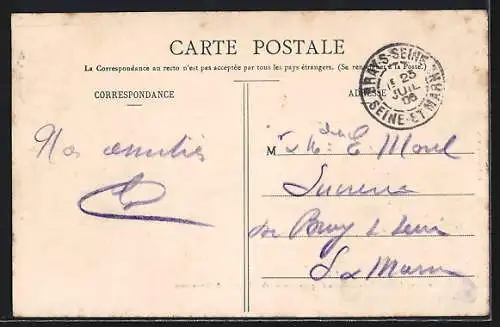 CARTE POSTALE
La Correspondance au recto n'est pas acceptée par tous les pays étrangers. (Se renseigner à la Poste)
CORRESPONDANCE
ADRESSE
BRAY-S-SEINE
25
JUIL
06
SEINE-ET-MARNE
Nos amitiés
M
E. Morel
Sucrerie
de Bray s/ Seine
S & Marne